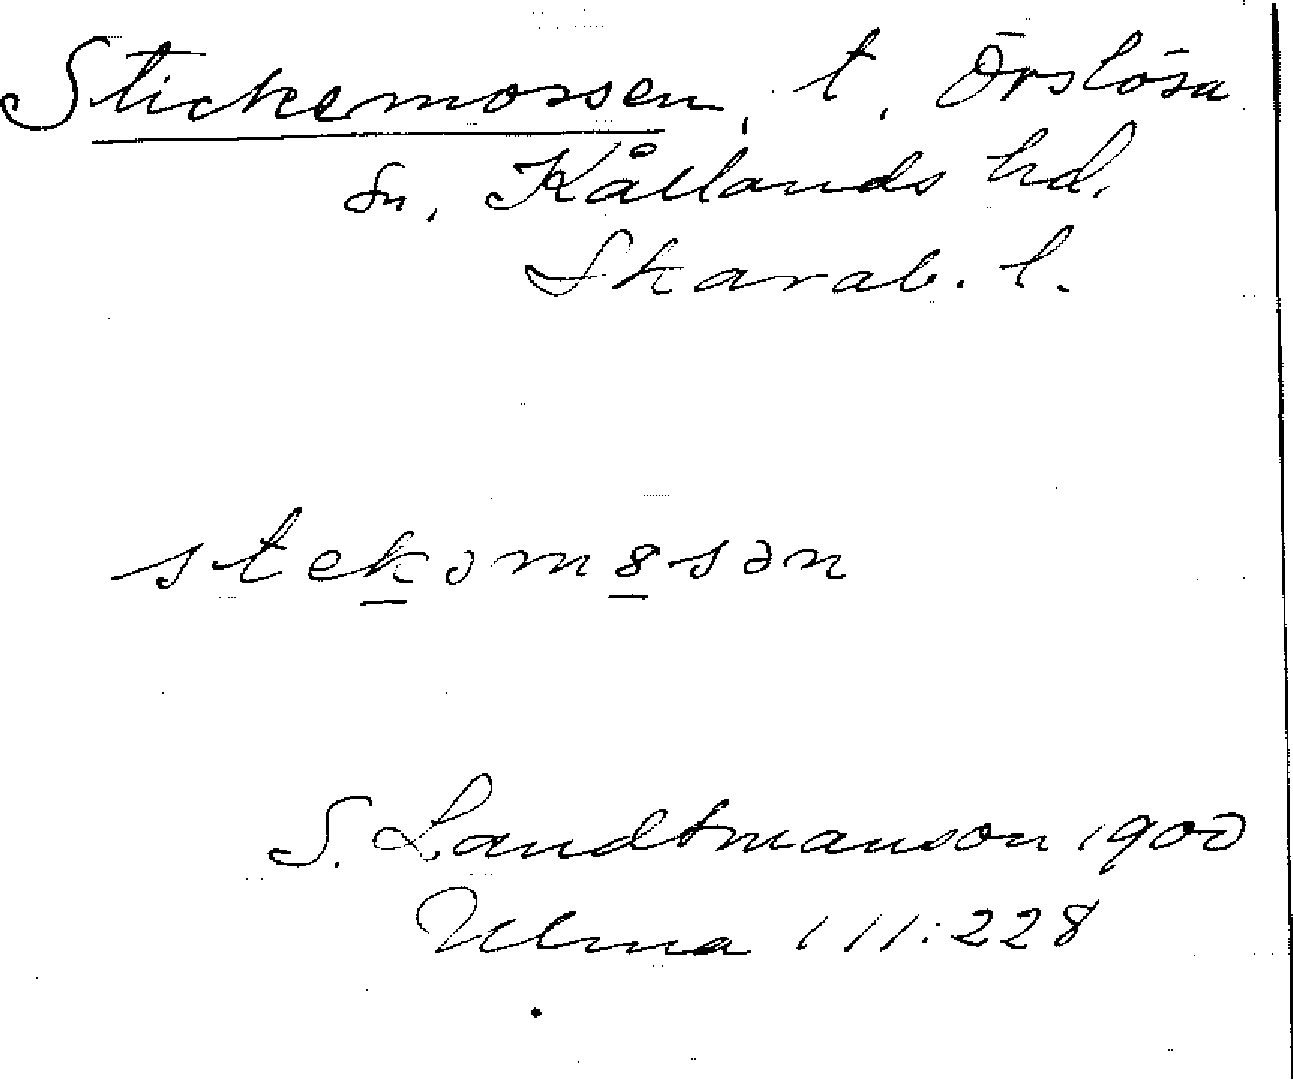 Stickemossen, t. Örslösa
sn, Kållands hd.
Skarab. l.
stekəm8sən
S. Landtmanson 1900
Ulma 111:228